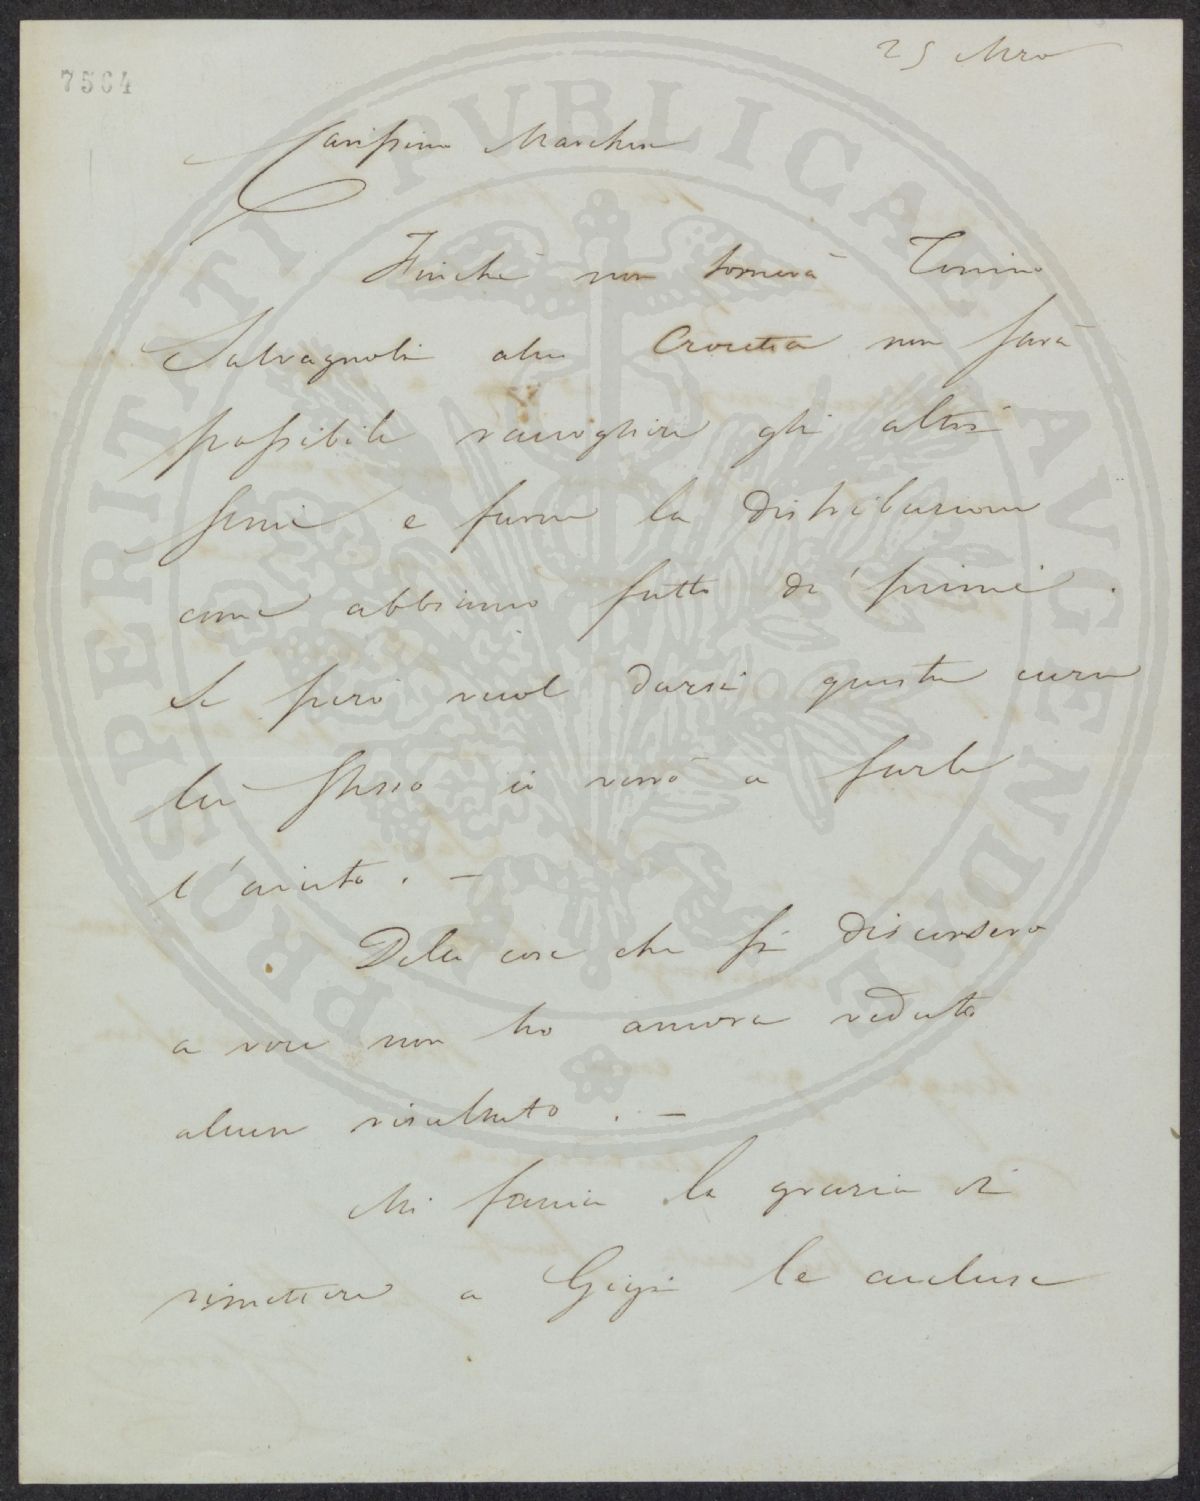 7564
25 Mzo
Carissimo Marchese
Finchè non tornerà Tonino
Salvagnoli alla Crocetta non sarà
possibile raccogliere gli altri
semi e farne la distribuzione
come abbiamo fatto de' primi.
Se però vuol darsi questa cura
lei stesso ci verrò a farle
l'aiuto. —
Delle cose che si discorsero
a voce non ho ancora veduto
alcun risultato. —
Mi faccia la grazia di
rimettere a Gigi le accluse
PROSPERITATI PVBLICAE AVGENDAE